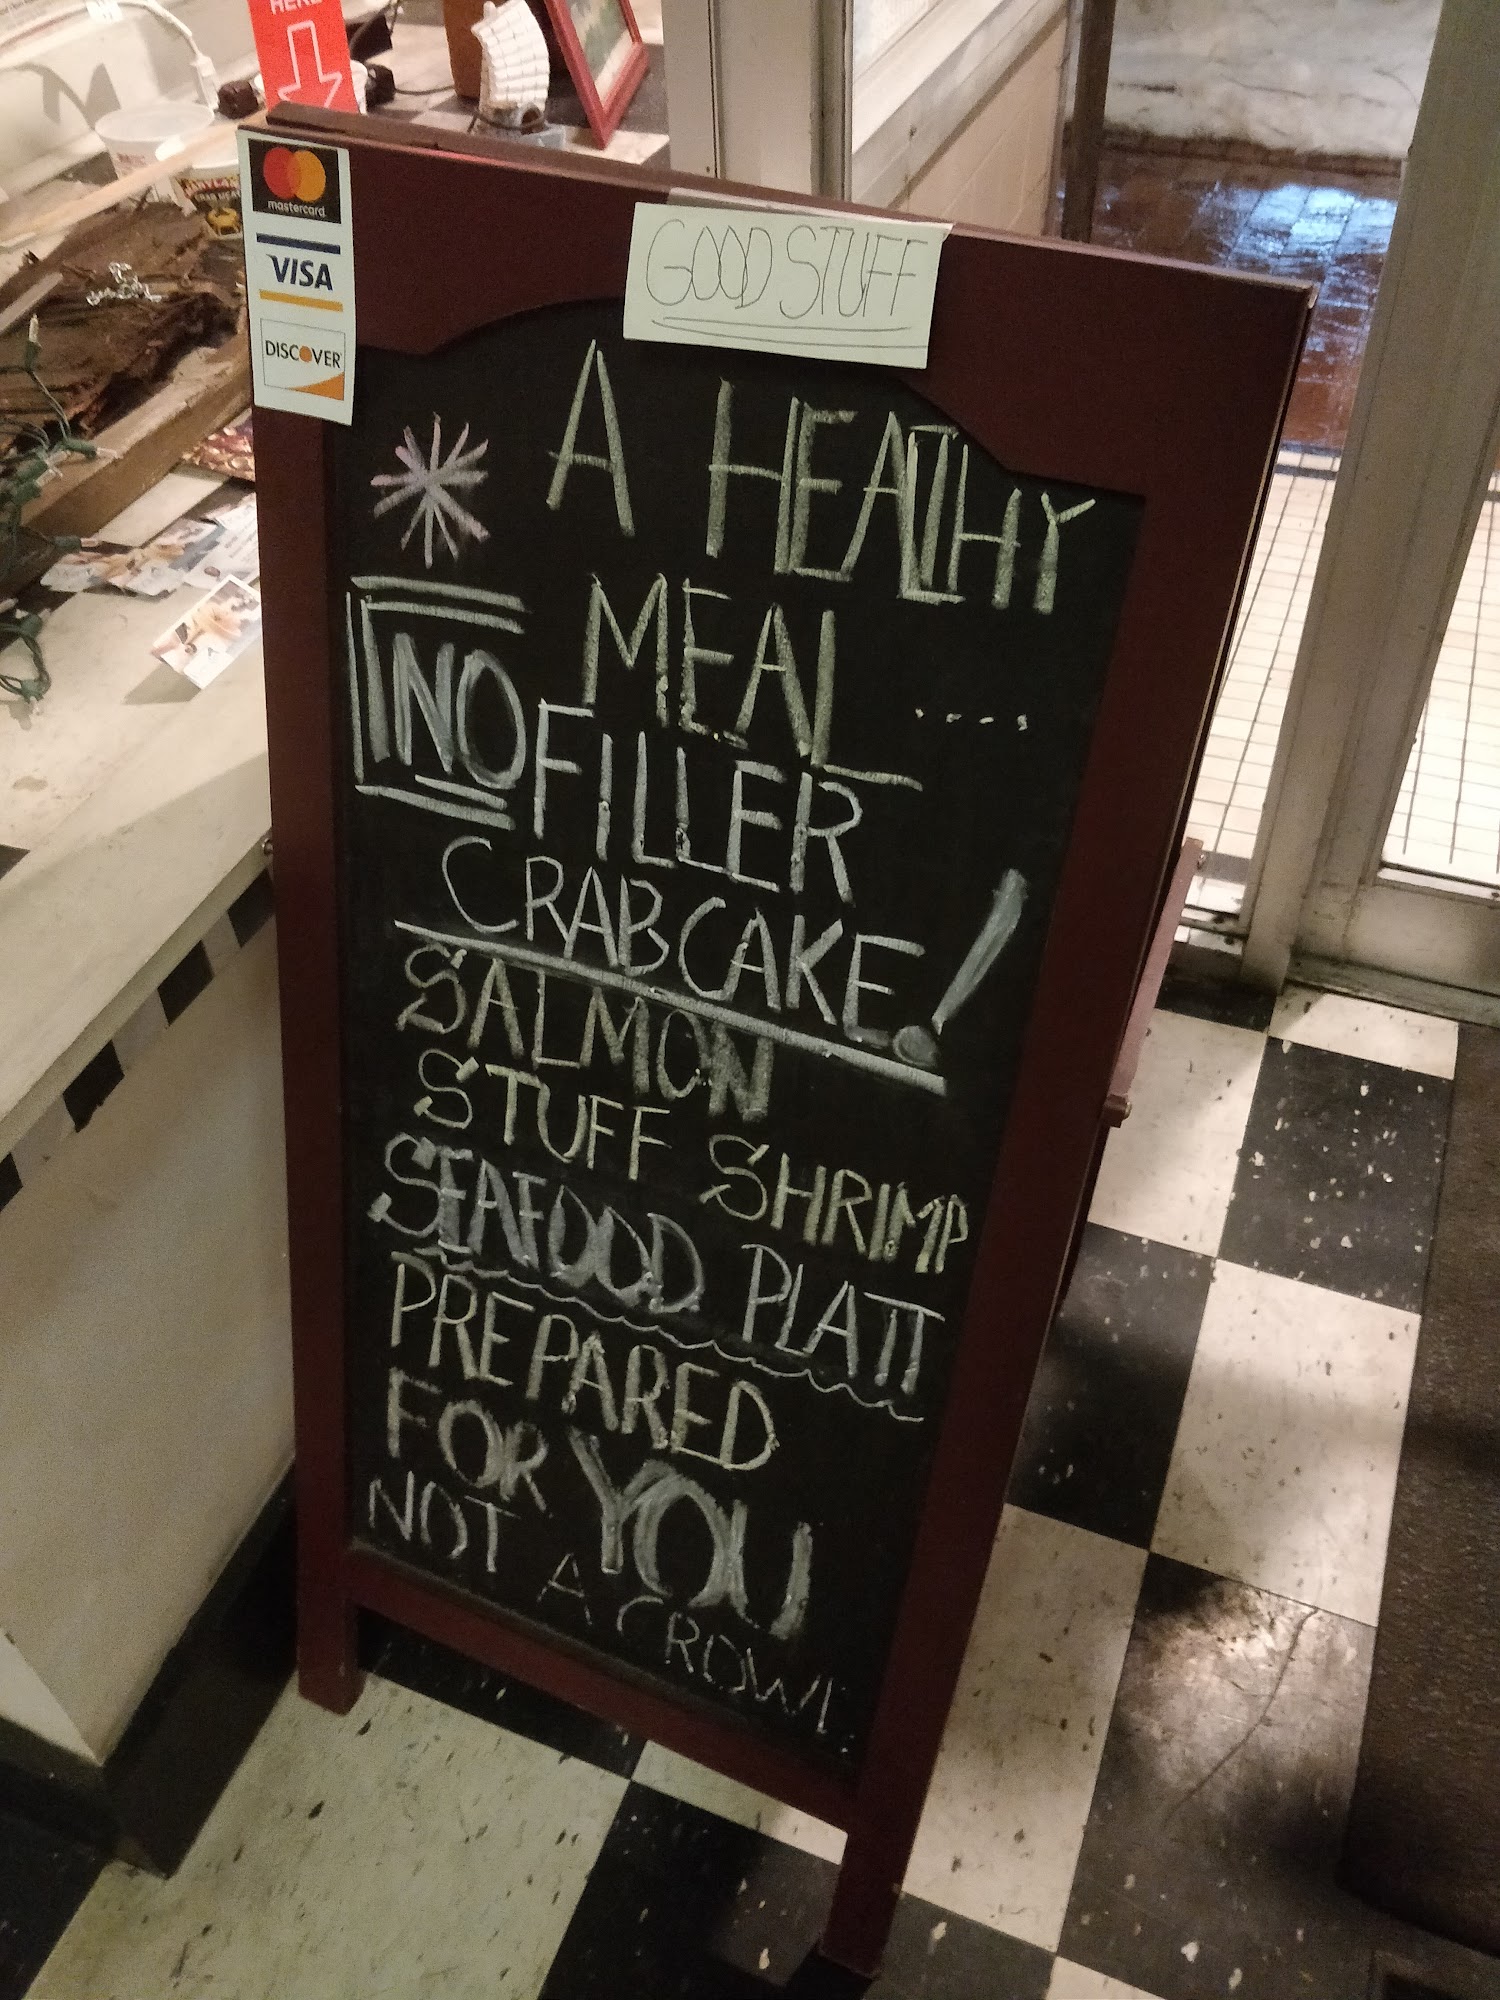 HERE
mastercard
VISA
DISCOVER
GOOD STUFF
A HEALTHY
MEAL ....
NO FILLER
CRABCAKE!
SALMON
STUFF SHRIMP
SEAFOOD PLATT
PREPARED
FOR YOU
NOT A CROWD